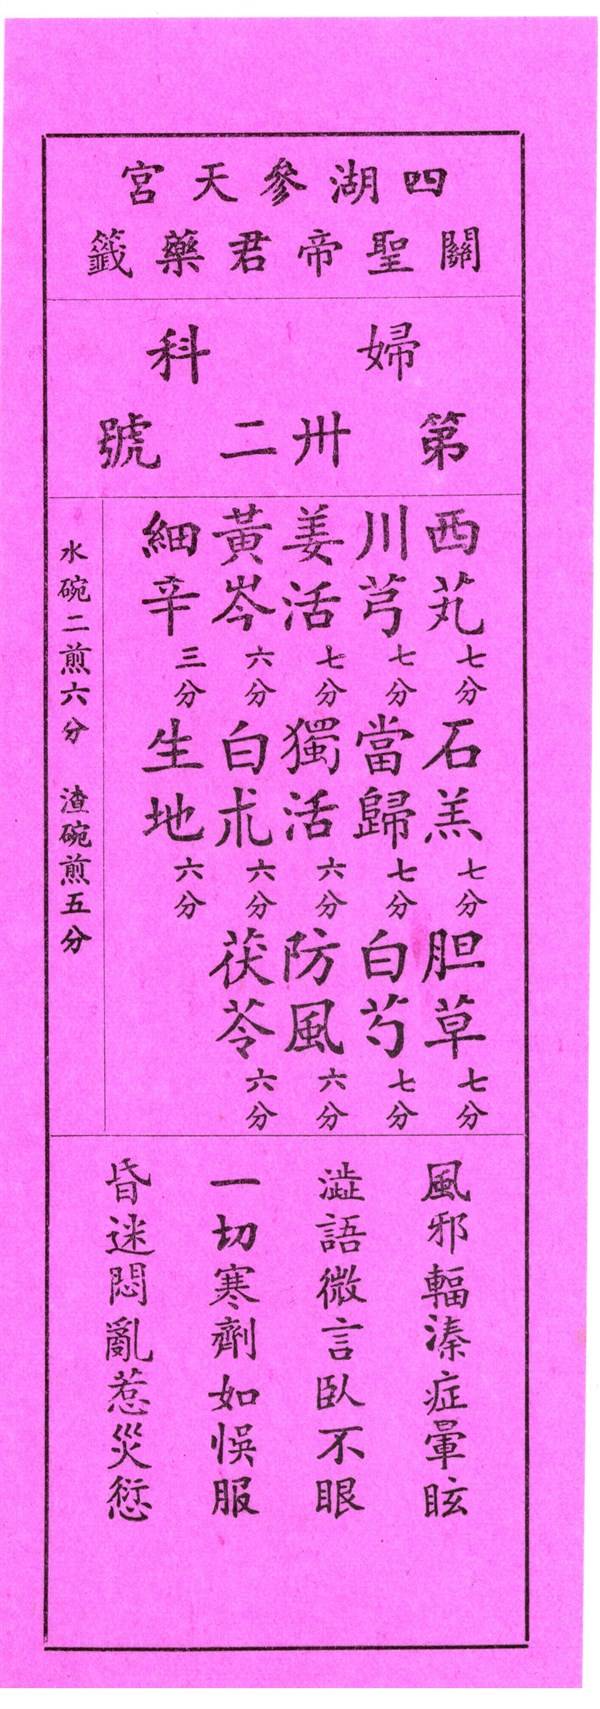 四湖參天宮
關聖帝君藥籤
婦科
第卅二號
西芃七分 石羔七分 胆草七分
川芎七分 當歸七分 白芍七分
姜活七分 獨活六分 防風六分
黃岑六分 白朮六分 茯苓六分
細辛三分 生地六分
水碗二煎六分 渣碗煎五分
風邪輻溱症暈眩
澁語微言臥不眼
一切寒劑如悞服
昏迷悶亂惹災愆